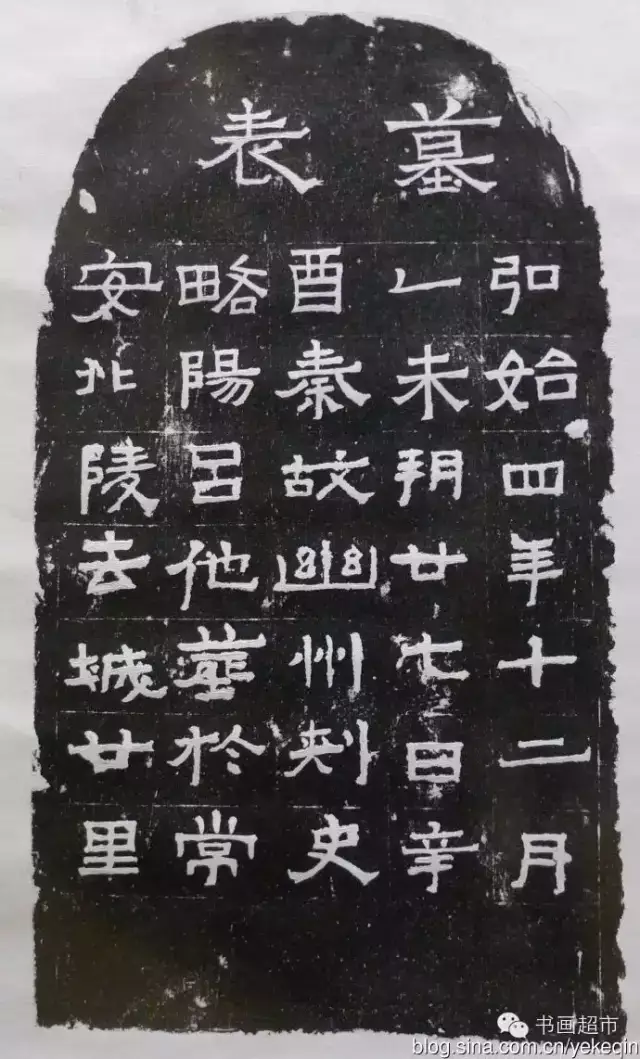 墓表
弘始四年十二月
乙未朔廿七日辛
酉秦故幽州刺史
略陽呂他葬於常
安北陵去城廿里
书画超市
blog.sina.com.cn/yekeqin